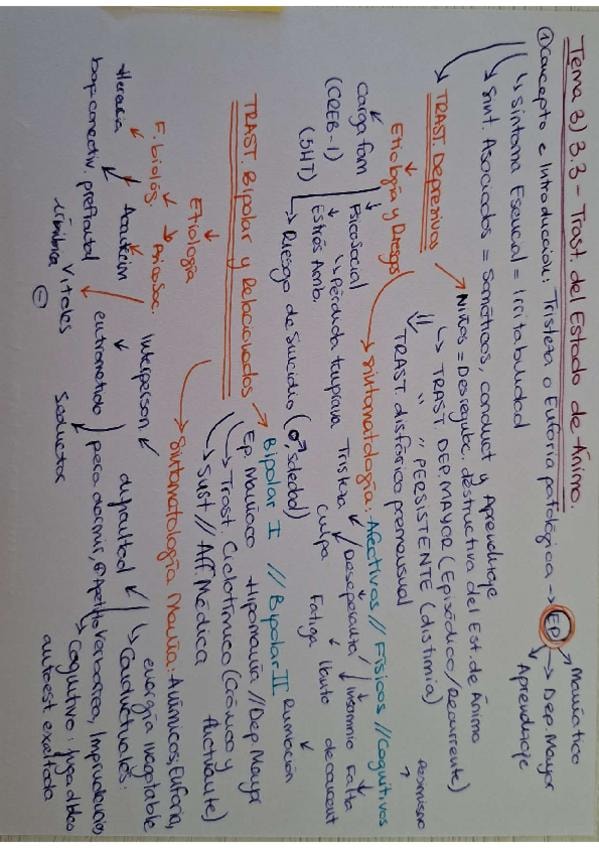 Tema 3) 3.3 - Trast. del Estado de Ánimo.
① Concepto e Introducción: Tristeza o Euforia patológica → EP
Maníatico
→ Dep. Mayor
Aprendizaje
↳ Síntoma Esencial = Irritabilidad
↳ Sínt. Asociados = Somáticos, conduct y Aprendizaje
TRAST. Depresivos
Niños = Desregulac. destructiva del Est. de Ánimo
↳ TRAST. DEP. MAYOR (Episódico/Recurrente)
" " PERSISTENTE (distimia)
TRAST. disfórico premenstrual
Etiología y Riesgos
→ Sintomatología: Afectivos // Físicos // Cognitivos
Carga fam
(CREB-1)
(5HT)
Psicosocial
↳ Pérdida temprana
Estrés Amb.
Tristeza
culpa
Desesperanza
Fatiga
llanto
Insomnio
Falta
de concent
Rumiación
→ Riesgo de Suicidio (♂, soledad)
TRAST. Bipolar y Relacionados
Bipolar I // Bipolar II
Ep. Maníaco Hipomanía // Dep. Mayor
→ Trast. Ciclotímico (Crónico y
fluctuante)
→ Sust // Afl. Médica
Etiología
→ Sintomatología Manía: Anímicos, Euforia,
energía inagotable
F. biológ. → Psicosoc.
Interperson.
↳ Conductuales:
dificultad
para dormir, ⊕ Apetito Verborrea, Imprudencias
Herencia
bajo conectiv. prefrontal
límbica
Vitales
⊖
entrometido
Seductor
→ Cognitivo:
autoest exaltada